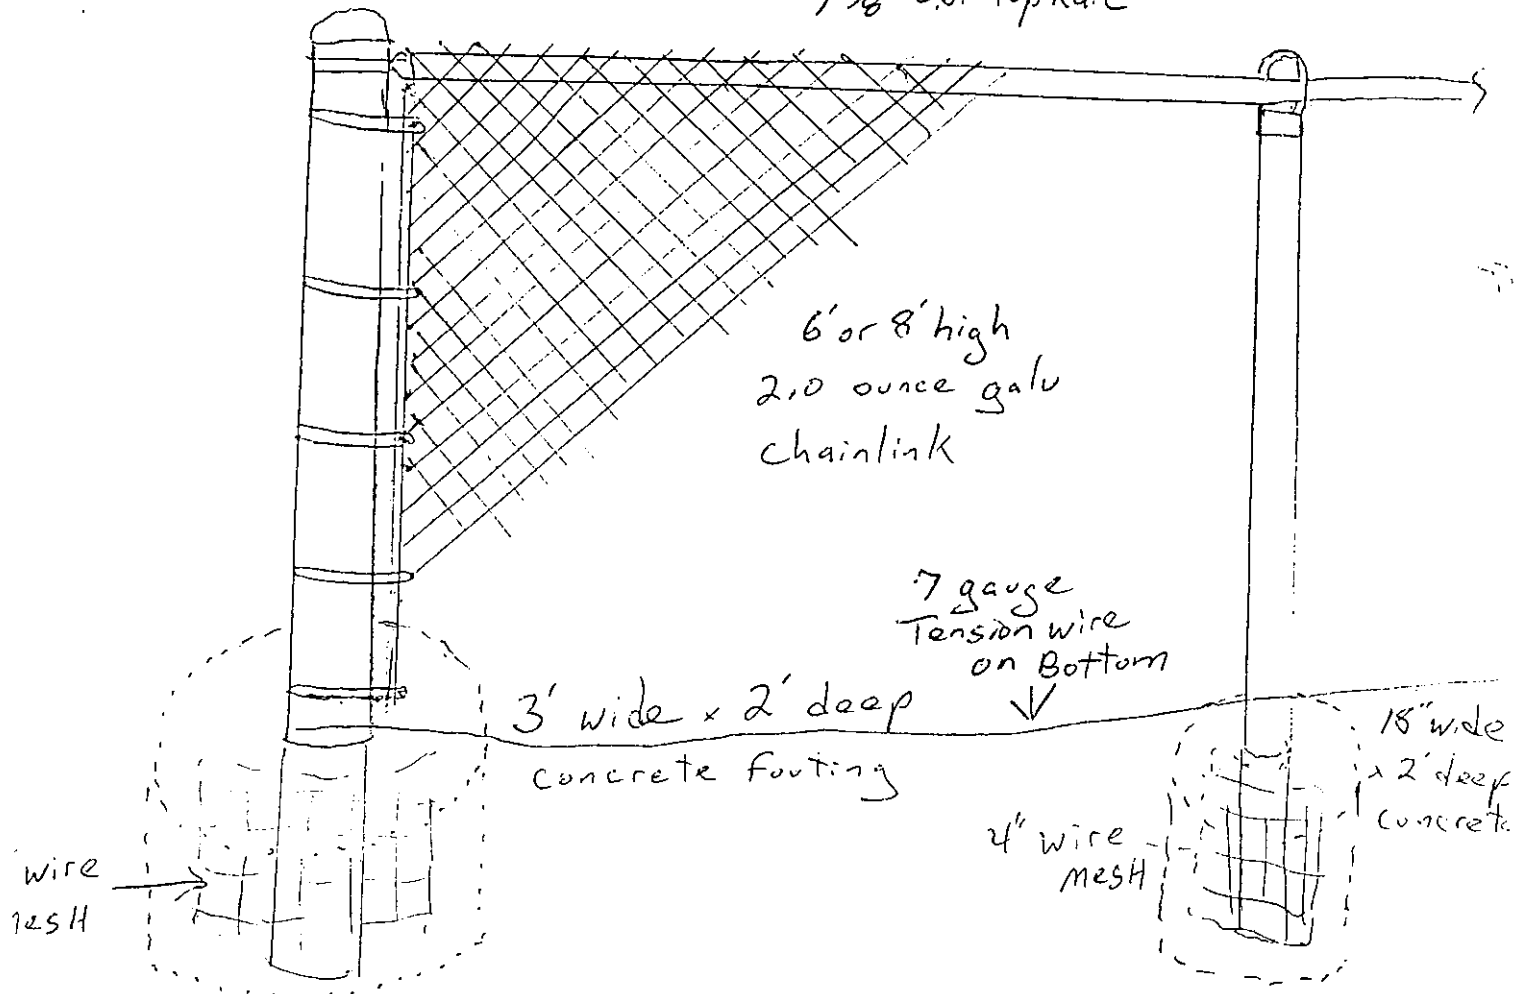 Top Rail
6' or 8' high
2.0 ounce galv
chainlink
7 gauge
Tension wire
on Bottom
3' wide x 2' deep
concrete footing
18" wide
x 2' deep
concrete
4" wire
mesH
wire
esH